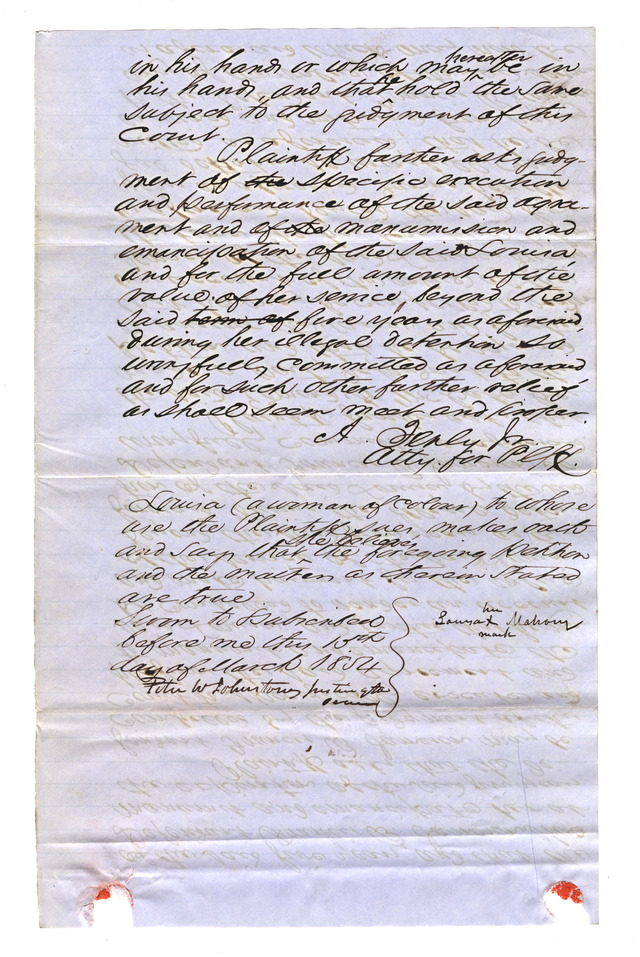 in his hands or which may hereafter be in
his hands, and that he hold the same
subject to the judgment of this
Court.
Plaintiff farther asks judg-
ment of the specific execution
and performance of the said agree-
ment and of the manumission and
emancipation of the said Louisa,
and for the full amount of the
value of her service, beyond the
said term of five years as aforesaid,
during her illegal detention so
wrongfully committed as aforesaid
and for such other further relief
as shall seem meet and proper.
A. Jr.
Atty for Pltff.
Louisa (a woman of colour) to whose
use the Plaintiff sues, makes oath
and says that she believes the foregoing petition
and the matters as therein stated
are true
Sworn to & subscribed
before me this 15th
day of March 1854
Peter W Johnstone Justice of the
Peace
her
Louisa X Mahony
mark